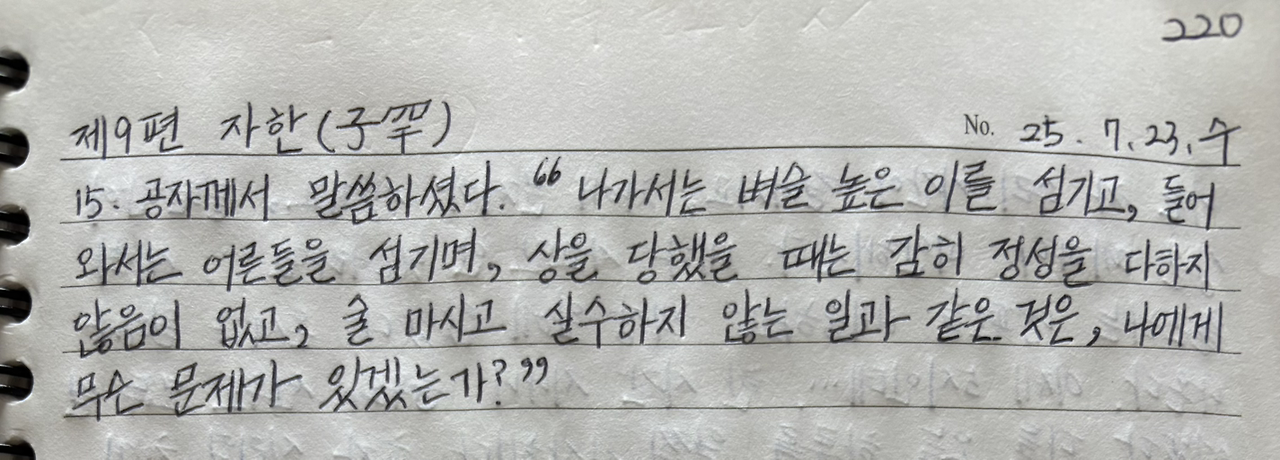 220
제9편 자한(子罕) No. 25. 7. 23. 수
15. 공자께서 말씀하셨다. "나가서는 벼슬 높은 이를 섬기고, 들어
와서는 어른들을 섬기며, 상을 당했을 때는 감히 정성을 다하지
않음이 없고, 술 마시고 실수하지 않는 일과 같은 것은, 나에게
무슨 문제가 있겠는가?"